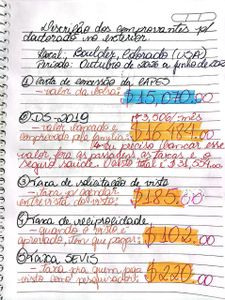 Descrição dos comprovantes p/
doutorado no exterior
Local: Boulder, Colorado (USA)
Período: Outubro de 2025 a junho de 202
① Carta de concessão da CAPES
- valor da bolsa:
$15,070.00
② DS-2019
$3,506/mês
- valor
comprovado pela família:
$16,484.00
↳ Eu preciso
esse
valor, fora as passagens, as taxas e o
seguro saúde.
③ Taxa de solicitação de visto
- Taxa p/ agendar
entrevista do visto:
$185.00
④ Taxa de reciprocidade
- quando o visto é
aprovado, tem que pagar:
$102.00
⑤ Taxa SEVIS
- Taxa pra quem
visto como pesquisador:
$220.00